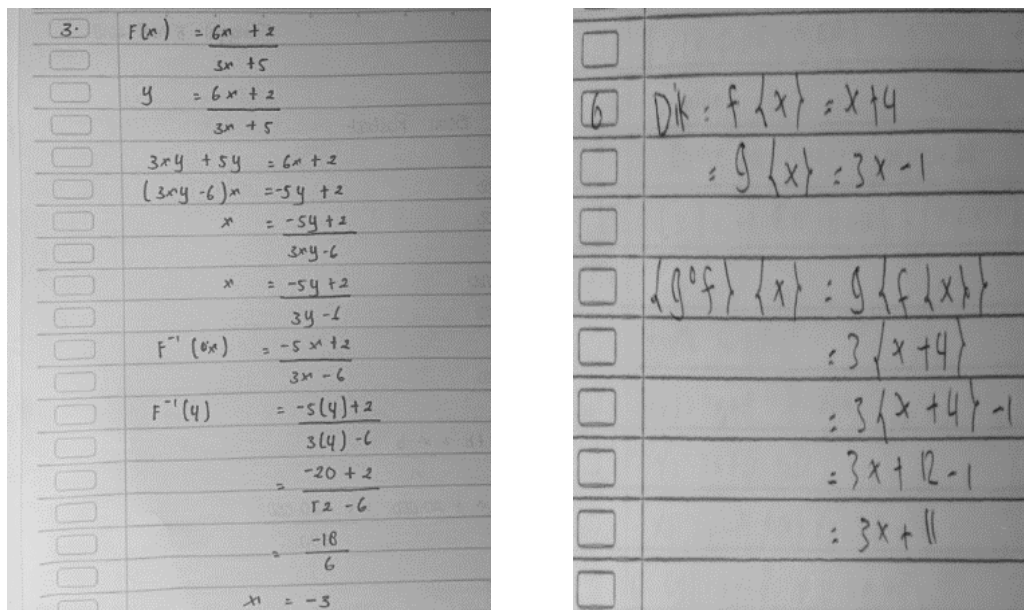 3. F(x) = 6x + 2
3x + 5
y = 6x + 2
3x + 5
3xy + 5y = 6x + 2
(3xy - 6)x = -5y + 2
x = -5y + 2
3xy - 6
x = -5y + 2
3y - 6
F⁻¹ (x) = -5x + 2
3x - 6
F⁻¹(4) = -5(4) + 2
3(4) - 6
= -20 + 2
12 - 6
= -18
6
x = -3
6 Dik : f {x} = x + 4
= g {x} = 3x - 1
{g°f} {x} = g {f {x}}
= 3 {x + 4}
= 3 {x + 4} - 1
= 3x + 12 - 1
= 3x + 11